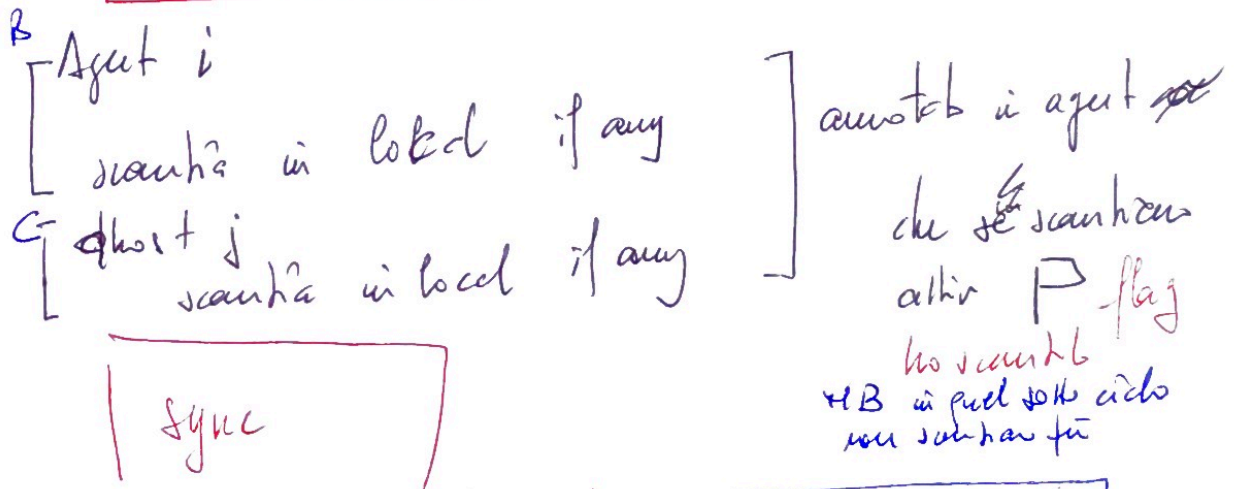 B
Agent i
scambia in local if any
C
ghost j
scambia in local if any
annotab in agent
che se scambiano
altiv P flag
ho scambiato
NB in quel sotto ciclo
non scambiano più
sync